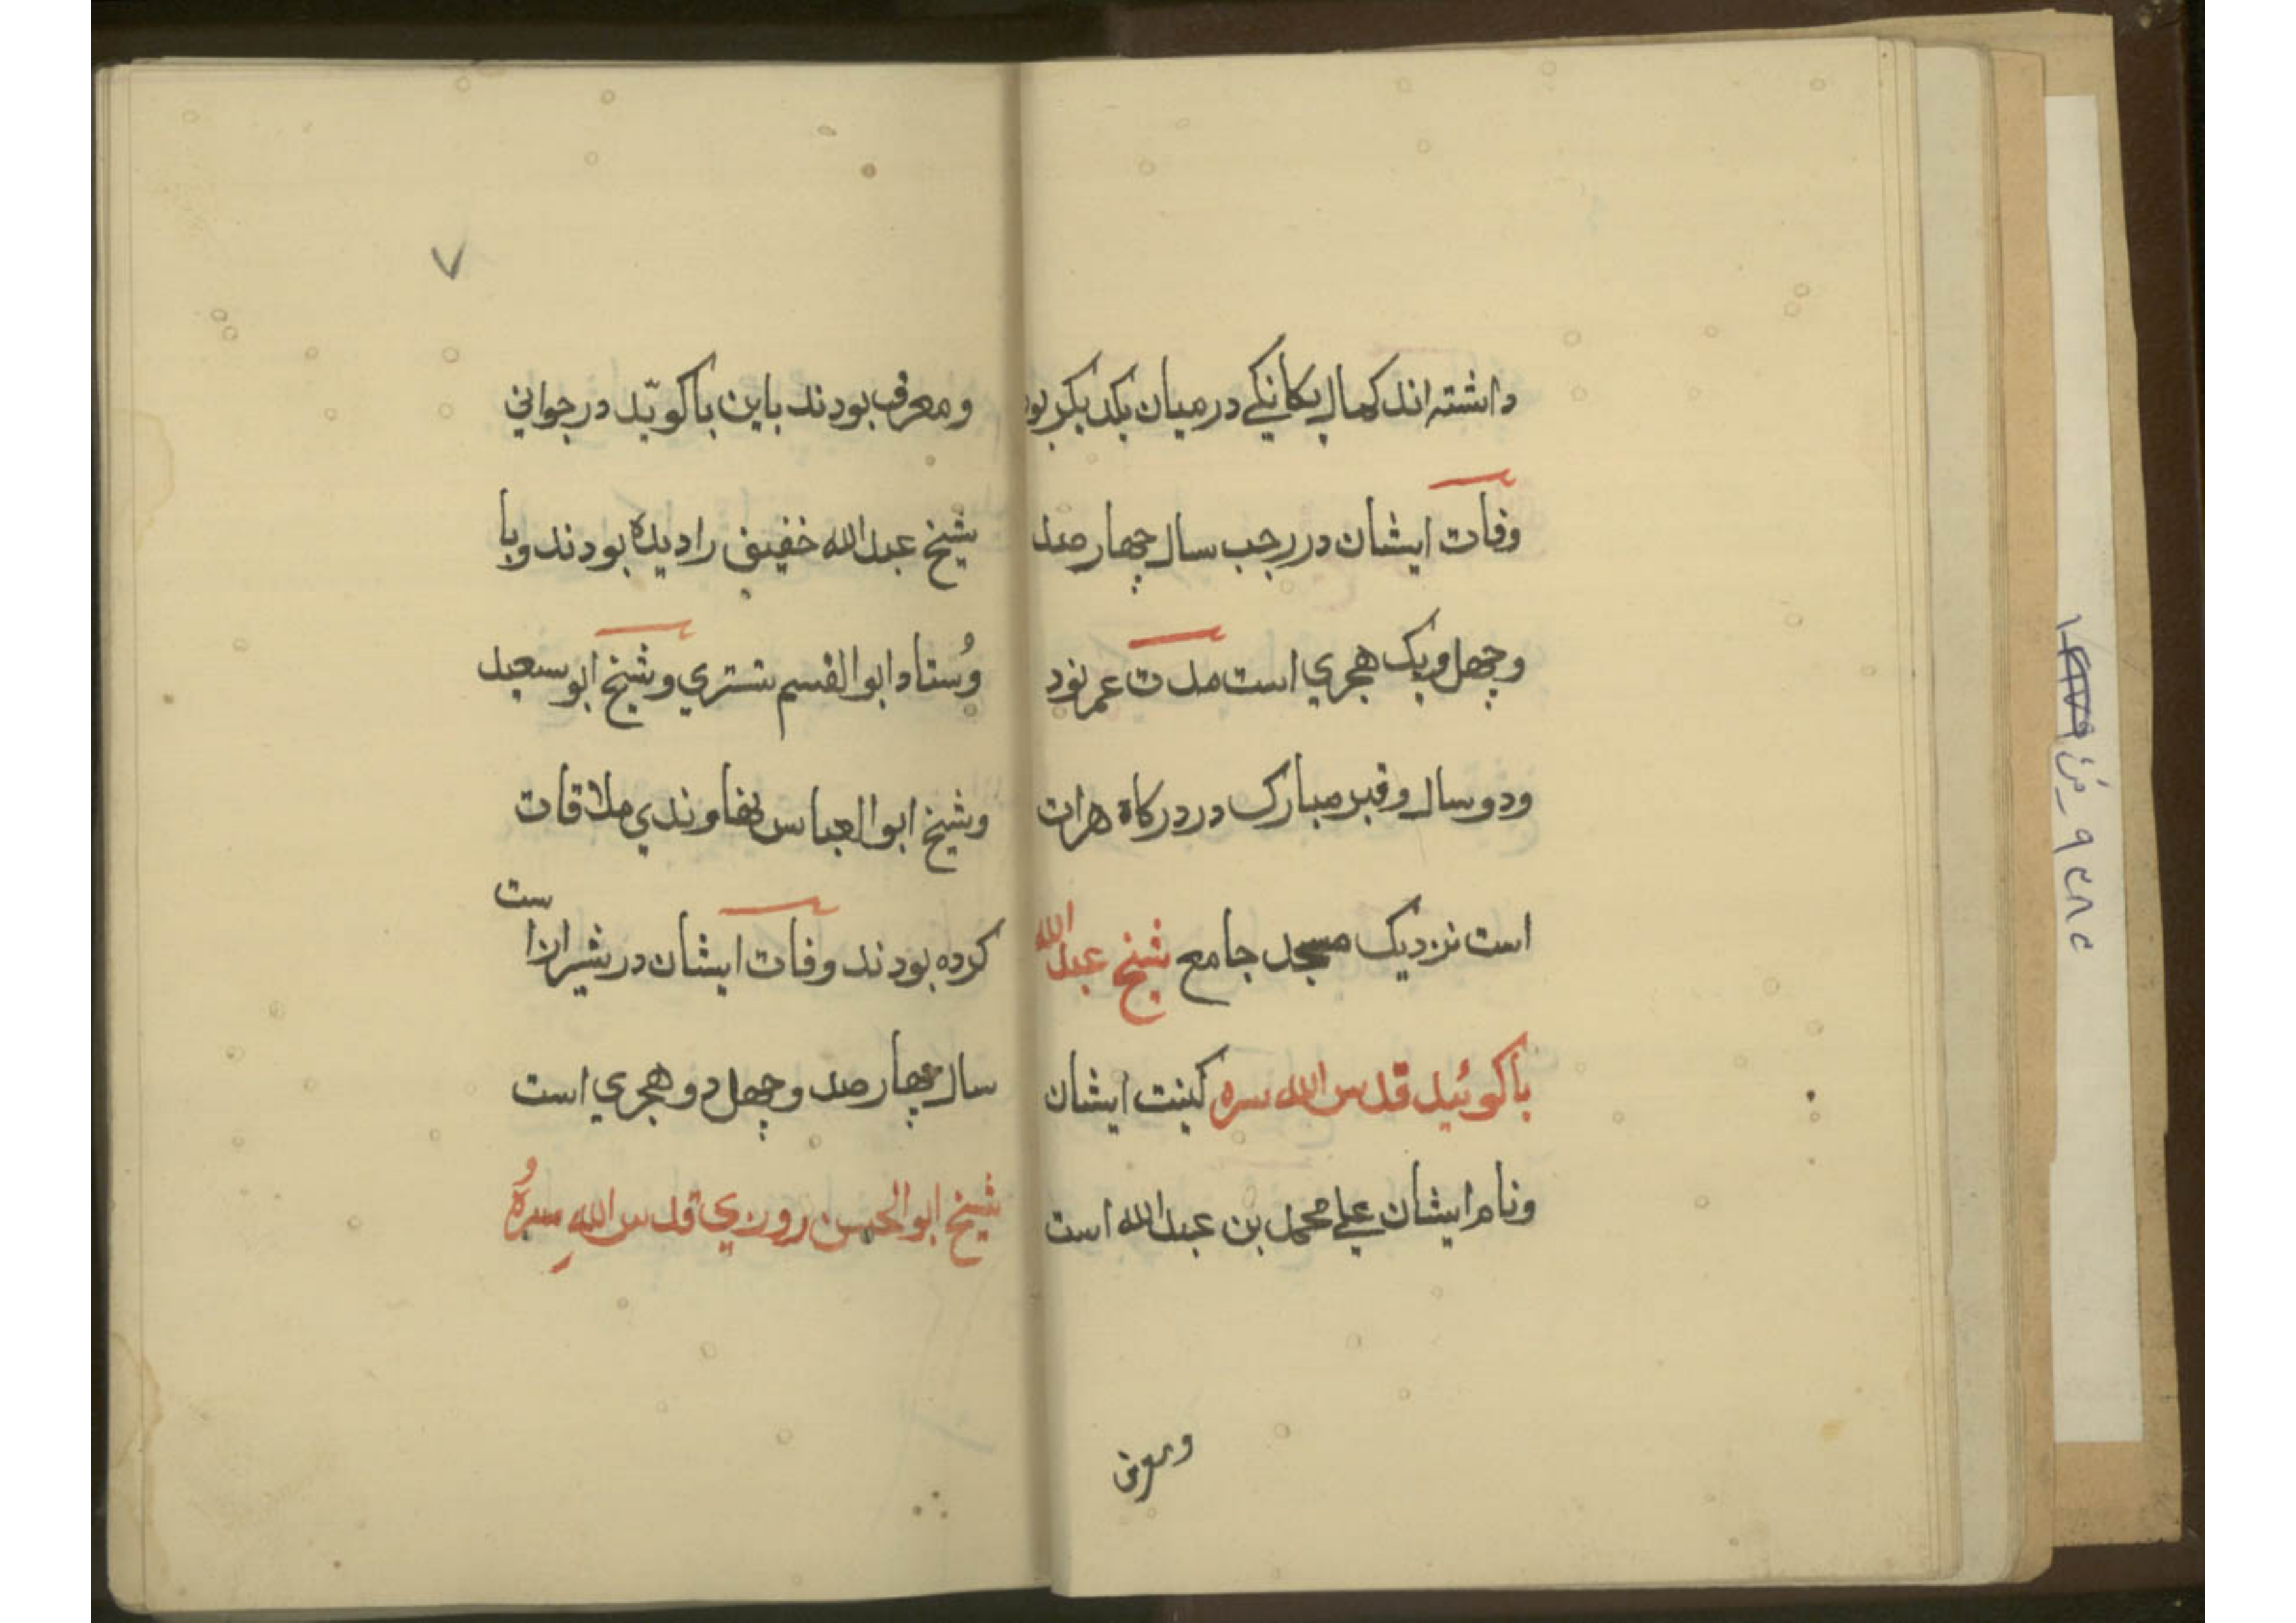 داشته اند کمال یکانکي در میان یکدیکر بود
وفات ایشان در رجب سال چهار صد
و چهل و یک هجري است مدت عمر نود
و دو سال و قبر مبارک در درکاه هرات
است نزدیک مسجد جامع شیخ عبد الله
باکوئید قدس الله سره کینت ایشان
و نام ایشان علي محمد بن عبد الله است
و معرف
٧
و معرف بودند باین باکویّد در جواني
شیخ عبد الله خفیف را دیده بودند و با
وُستاد ابو القسم تستري و شیخ ابو سعید
و شیخ ابو العباس نهاوندي ملاقات
کرده بودند وفات ایشان در شیراز است
سال چهار صد و چهل دو هجري است
شیخ ابو الحسن روزي قدس اللهِ سرهُ